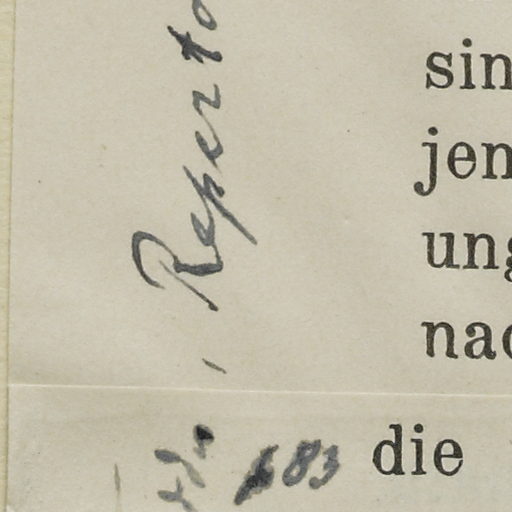 Reperto
sin
jen
ung
nac
die
683